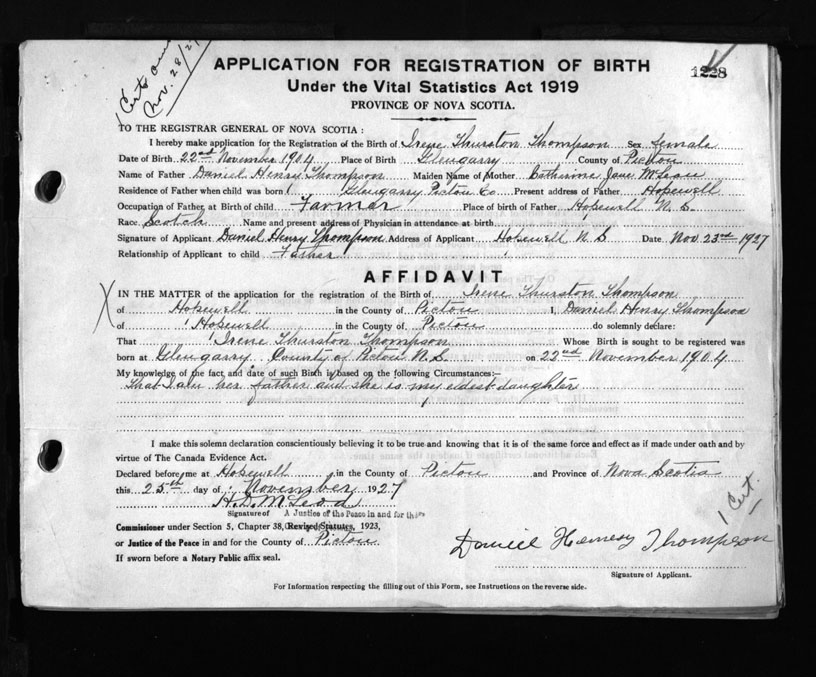 1 Certs
Nov. 28/27
APPLICATION FOR REGISTRATION OF BIRTH
1228
Under the Vital Statistics Act 1919
PROVINCE OF NOVA SCOTIA.
TO THE REGISTRAR GENERAL OF NOVA SCOTIA:
I hereby make application for the Registration of the Birth of Irene Thurston Thompson Sex female
Date of Birth 22nd November 1904 Place of Birth Glengarry County of Pictou
Name of Father Daniel Henry Thompson Maiden Name of Mother Catherine Jane McLean
Residence of Father when child was born Glengarry Pictou Co Present address of Father Hopewell
Occupation of Father, at Birth of child Farmar Place of birth of Father Hopewell N. S.
Race Scotch Name and present address of Physician in attendance at birth
Signature of Applicant Daniel Henry Thompson Address of Applicant Hopewell N S Date Nov 23rd 1927
Relationship of Applicant to child Father
AFFIDAVIT
IN THE MATTER of the application for the registration of the Birth of Irene Thurston Thompson
of Hopewell in the County of Pictou I, Daniel Henry Thompson
of Hopewell in the County of Pictou do solemnly declare:
That Irene Thurston Thompson Whose Birth is sought to be registered was
born at Glengarry County of Pictou N.S. on 22nd November 1904
My knowledge of the fact and date of such Birth is based on the following Circumstances:—
That I am her father and she is my eldest daughter
I make this solemn declaration conscientiously believing it to be true and knowing that it is of the same force and effect as if made under oath and by
virtue of The Canada Evidence Act.
Declared before me at Hopewell in the County of Pictou and Province of Nova Scotia
this 25th day of November 1927
H. D. McLeod
Signature of A Justice of the Peace in and for the
Commissioner under Section 5, Chapter 38, Revised Statutes, 1923,
or Justice of the Peace in and for the County of Pictou
If sworn before a Notary Public affix seal.
1 Cert.
Daniel Henery Thompson
Signature of Applicant.
For Information respecting the filling out of this Form, see Instructions on the reverse side.